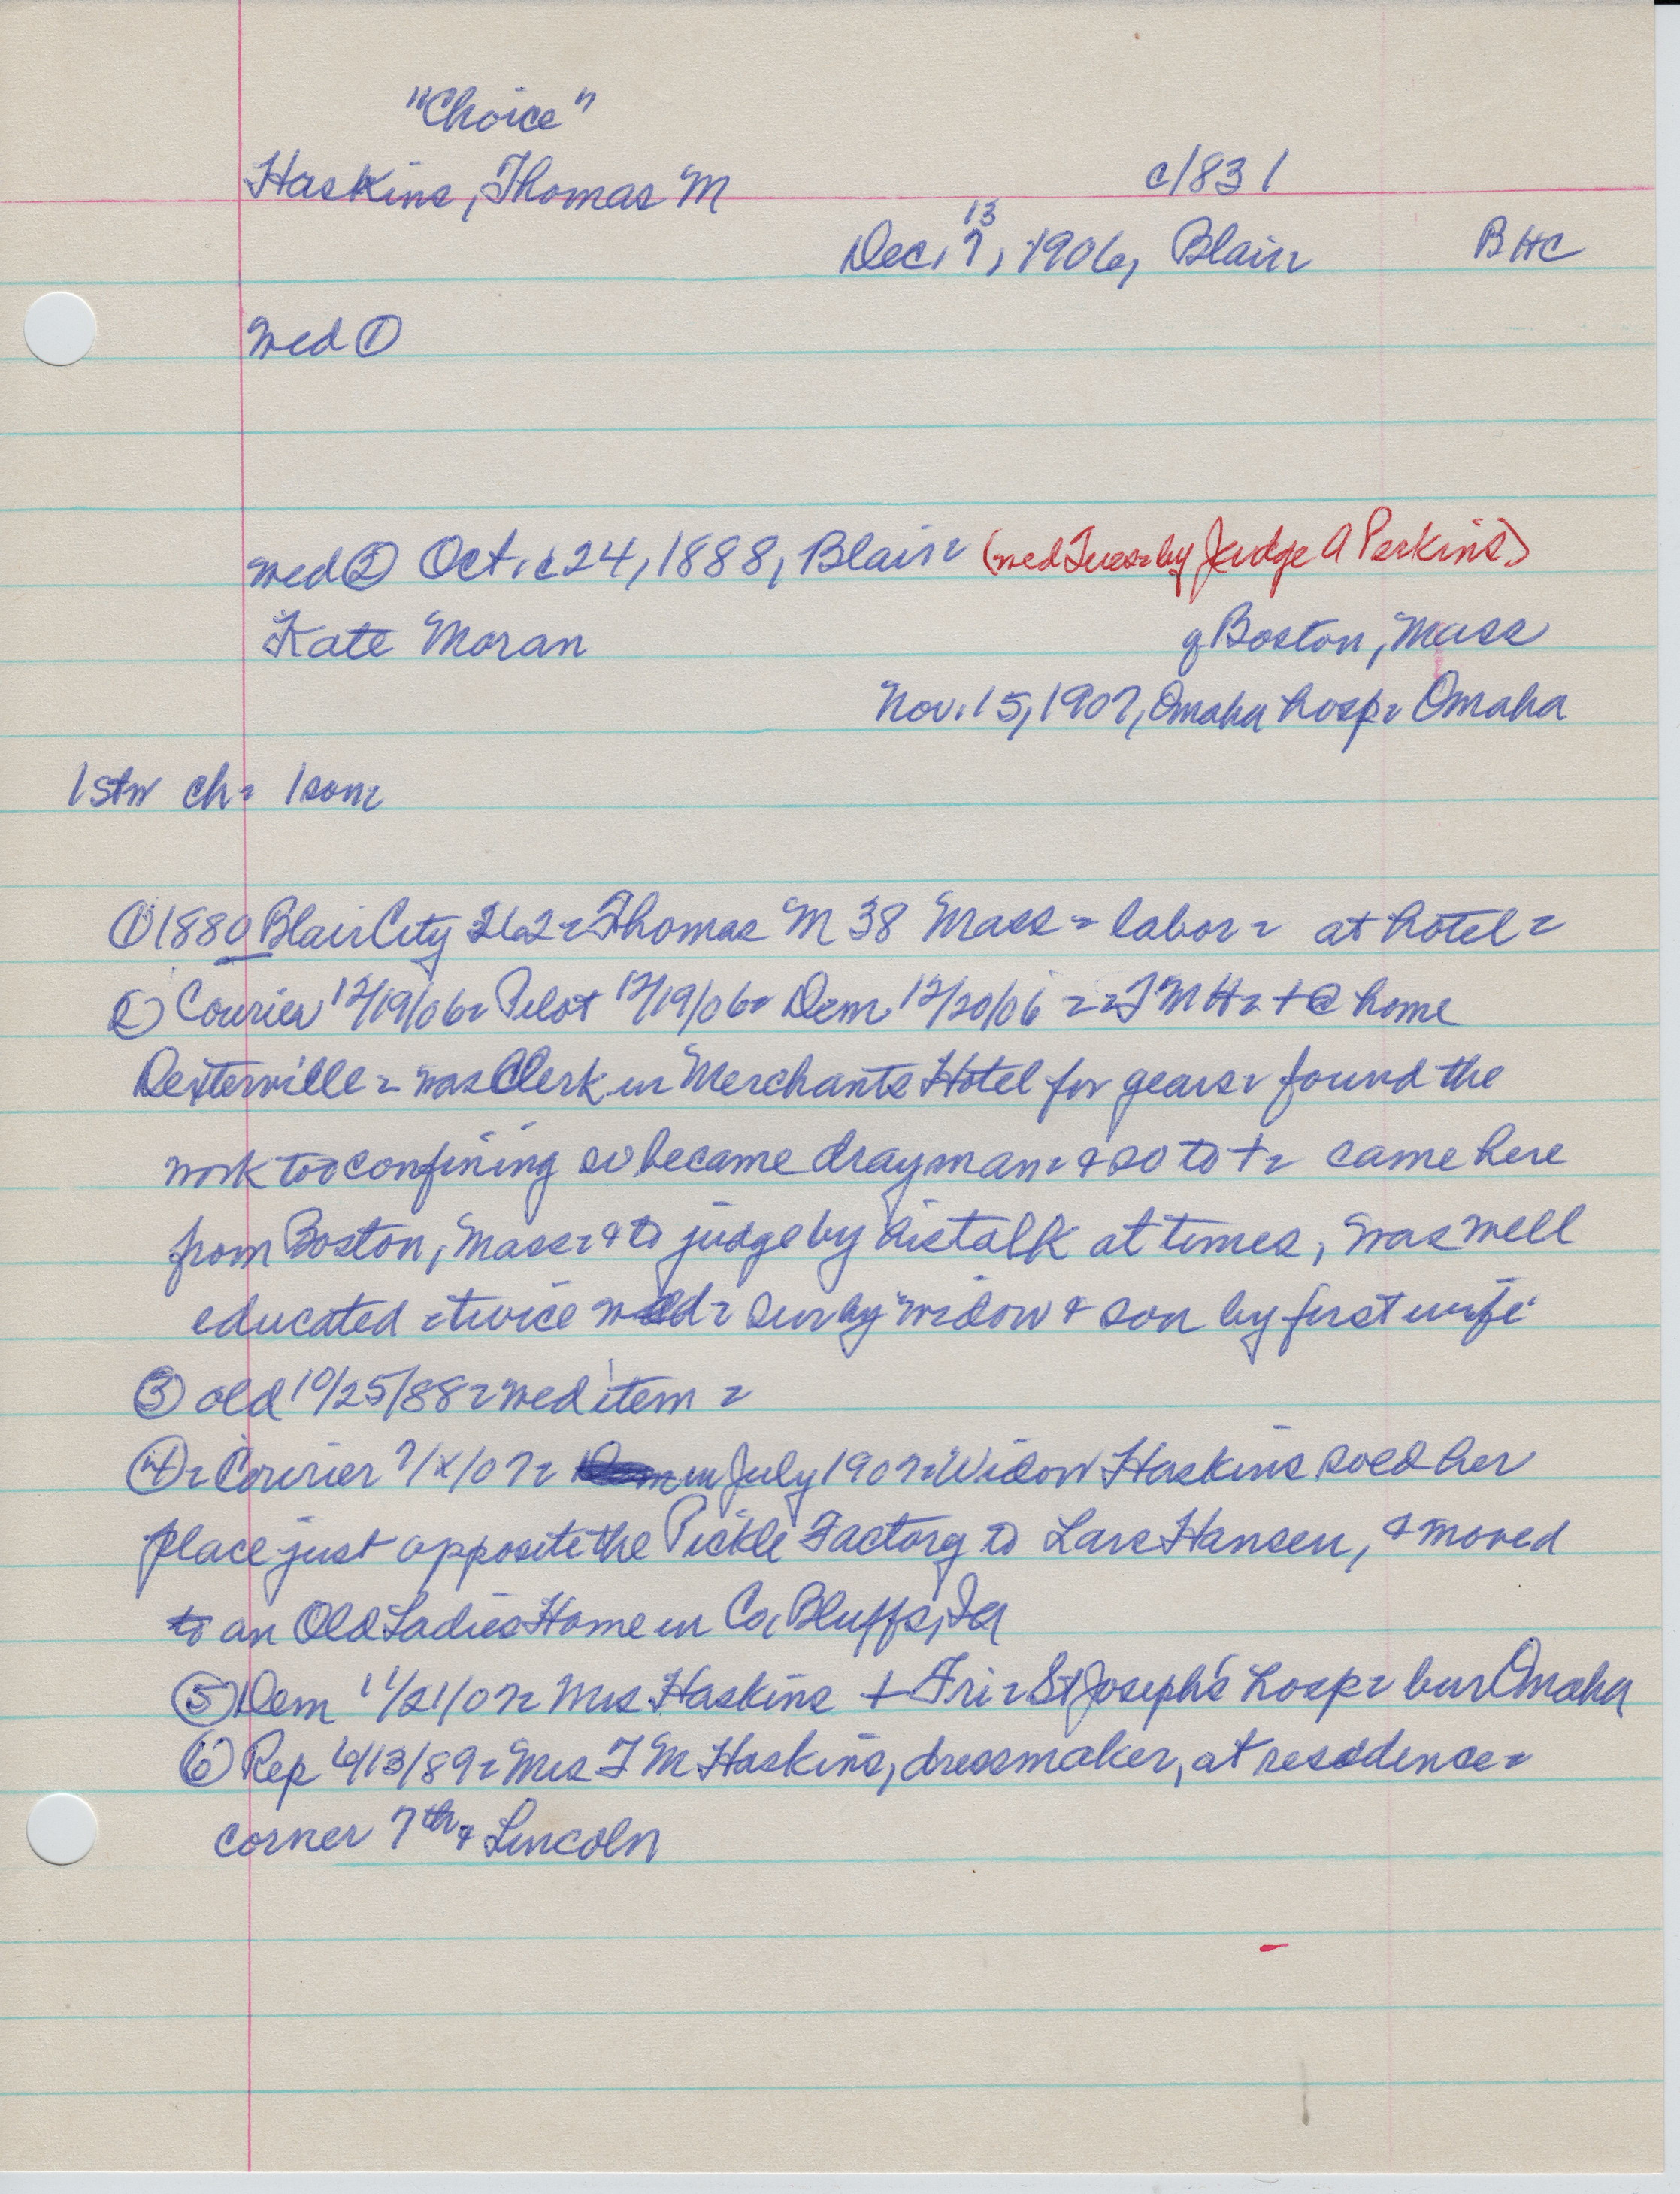 "Choice"
Haskins, Thomas M c/831
13
Dec. 7, 1906, Blair BHC
wed ①
wed ② Oct. c24, 1888, Blair= (wed Tues= by Judge A Perkins)
Kate Moran of Boston, Mass
Nov. 15, 1907, Omaha hosp= Omaha
1stw ch= 1 son=
① 1880 Blair City 262= Thomas M 38 Mass = labor = at hotel =
② Courier 12/19/06= Pilot 12/19/06= Dem 12/20/06 == T M H= + @ home
Dexterville = was Clerk in Merchants Hotel for years= found the
work too confining so became drayman= & so to += came here
from Boston, Mass= & to judge by his talk at times, was well
educated = twice wed = sur by widow & son by first wife
③ old 10/25/88= wed item =
④ = Courier 7/x/07= in July 1907= Widow Haskins sold her
place just opposite the Pickle Factory to Lars Hansen, & moved
to an Old Ladies Home in Co. Bluffs, Ia
⑤ Dem 11/21/07= Mrs Haskins + Fri= St Joseph's hosp= bur Omaha
⑥ Rep 6/13/89= Mrs T M Haskins, dressmaker, at residence=
corner 7th & Lincoln